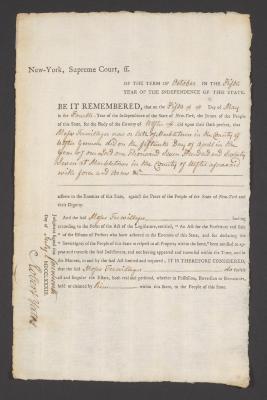 New-York, Supreme Court, ſſ.
OF THE TERM OF October IN THE Fifth
YEAR OF THE INDEPENDENCE OF THIS STATE.
BE IT REMEMBERED, that on the Fifth Day of May
in the Fourth Year of the Independence of the State of New-York, the Jurors of the People
of this State, for the Body of the County of Ulster upon their Oath present, that
Moses Terwilleger now or late of Marbletown in the County of
Ulster Yeoman did on the fifteenth Day of April in the
Year of our Lord one Thousand Seven Hundred and Seventy
Seven at Marbletown in the County of Ulster aforesaid
with force and arms &c
adhere to the Enemies of this State, against the Peace of the People of the State of New-York and
their Dignity.
And the said Moses Terwilleger having
according to the Form of the Act of the Legislature, entitled, "An Act for the Forfeiture and Sale
" of the Estates of Persons who have adhered to the Enemies of this State, and for declaring the
" Sovereignty of the People of this State in respect to all Property within the same," been notified to ap-
pear and traverse the said Indictment, and not having appeared and traversed within the Time, and in
the Manner, in and by the said Act limited and required; IT IS THEREFORE CONSIDERED,
that the said Moses Terwilleger do forfeit
all and singular the Estate, both real and personal, whether in Possession, Reversion or Remainder,
held or claimed by him within this State, to the People of this State.
Judgment signed this
Day of July
Robert Yates